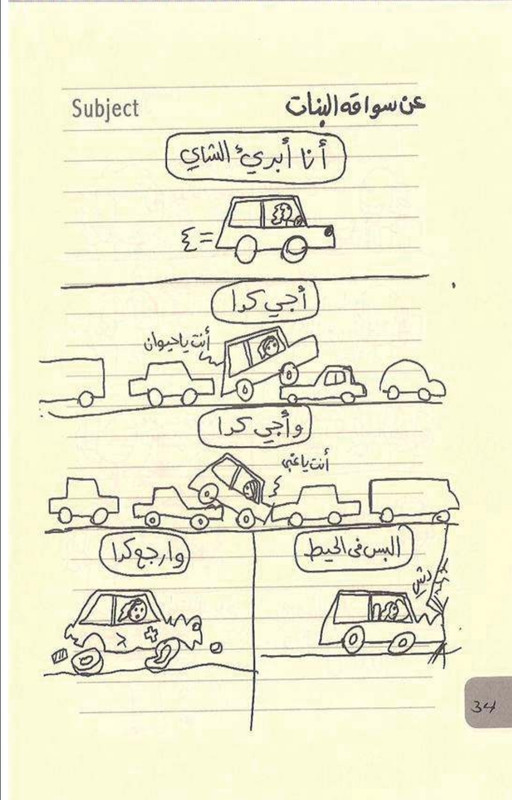 Subject
عن سواقه البنات
أنا أبريء الشاي
أجي كدا
أنت يا حيوان
وأجي كدا
أنت يا غبي
البس في الحيط
دش
وارجع كدا
34